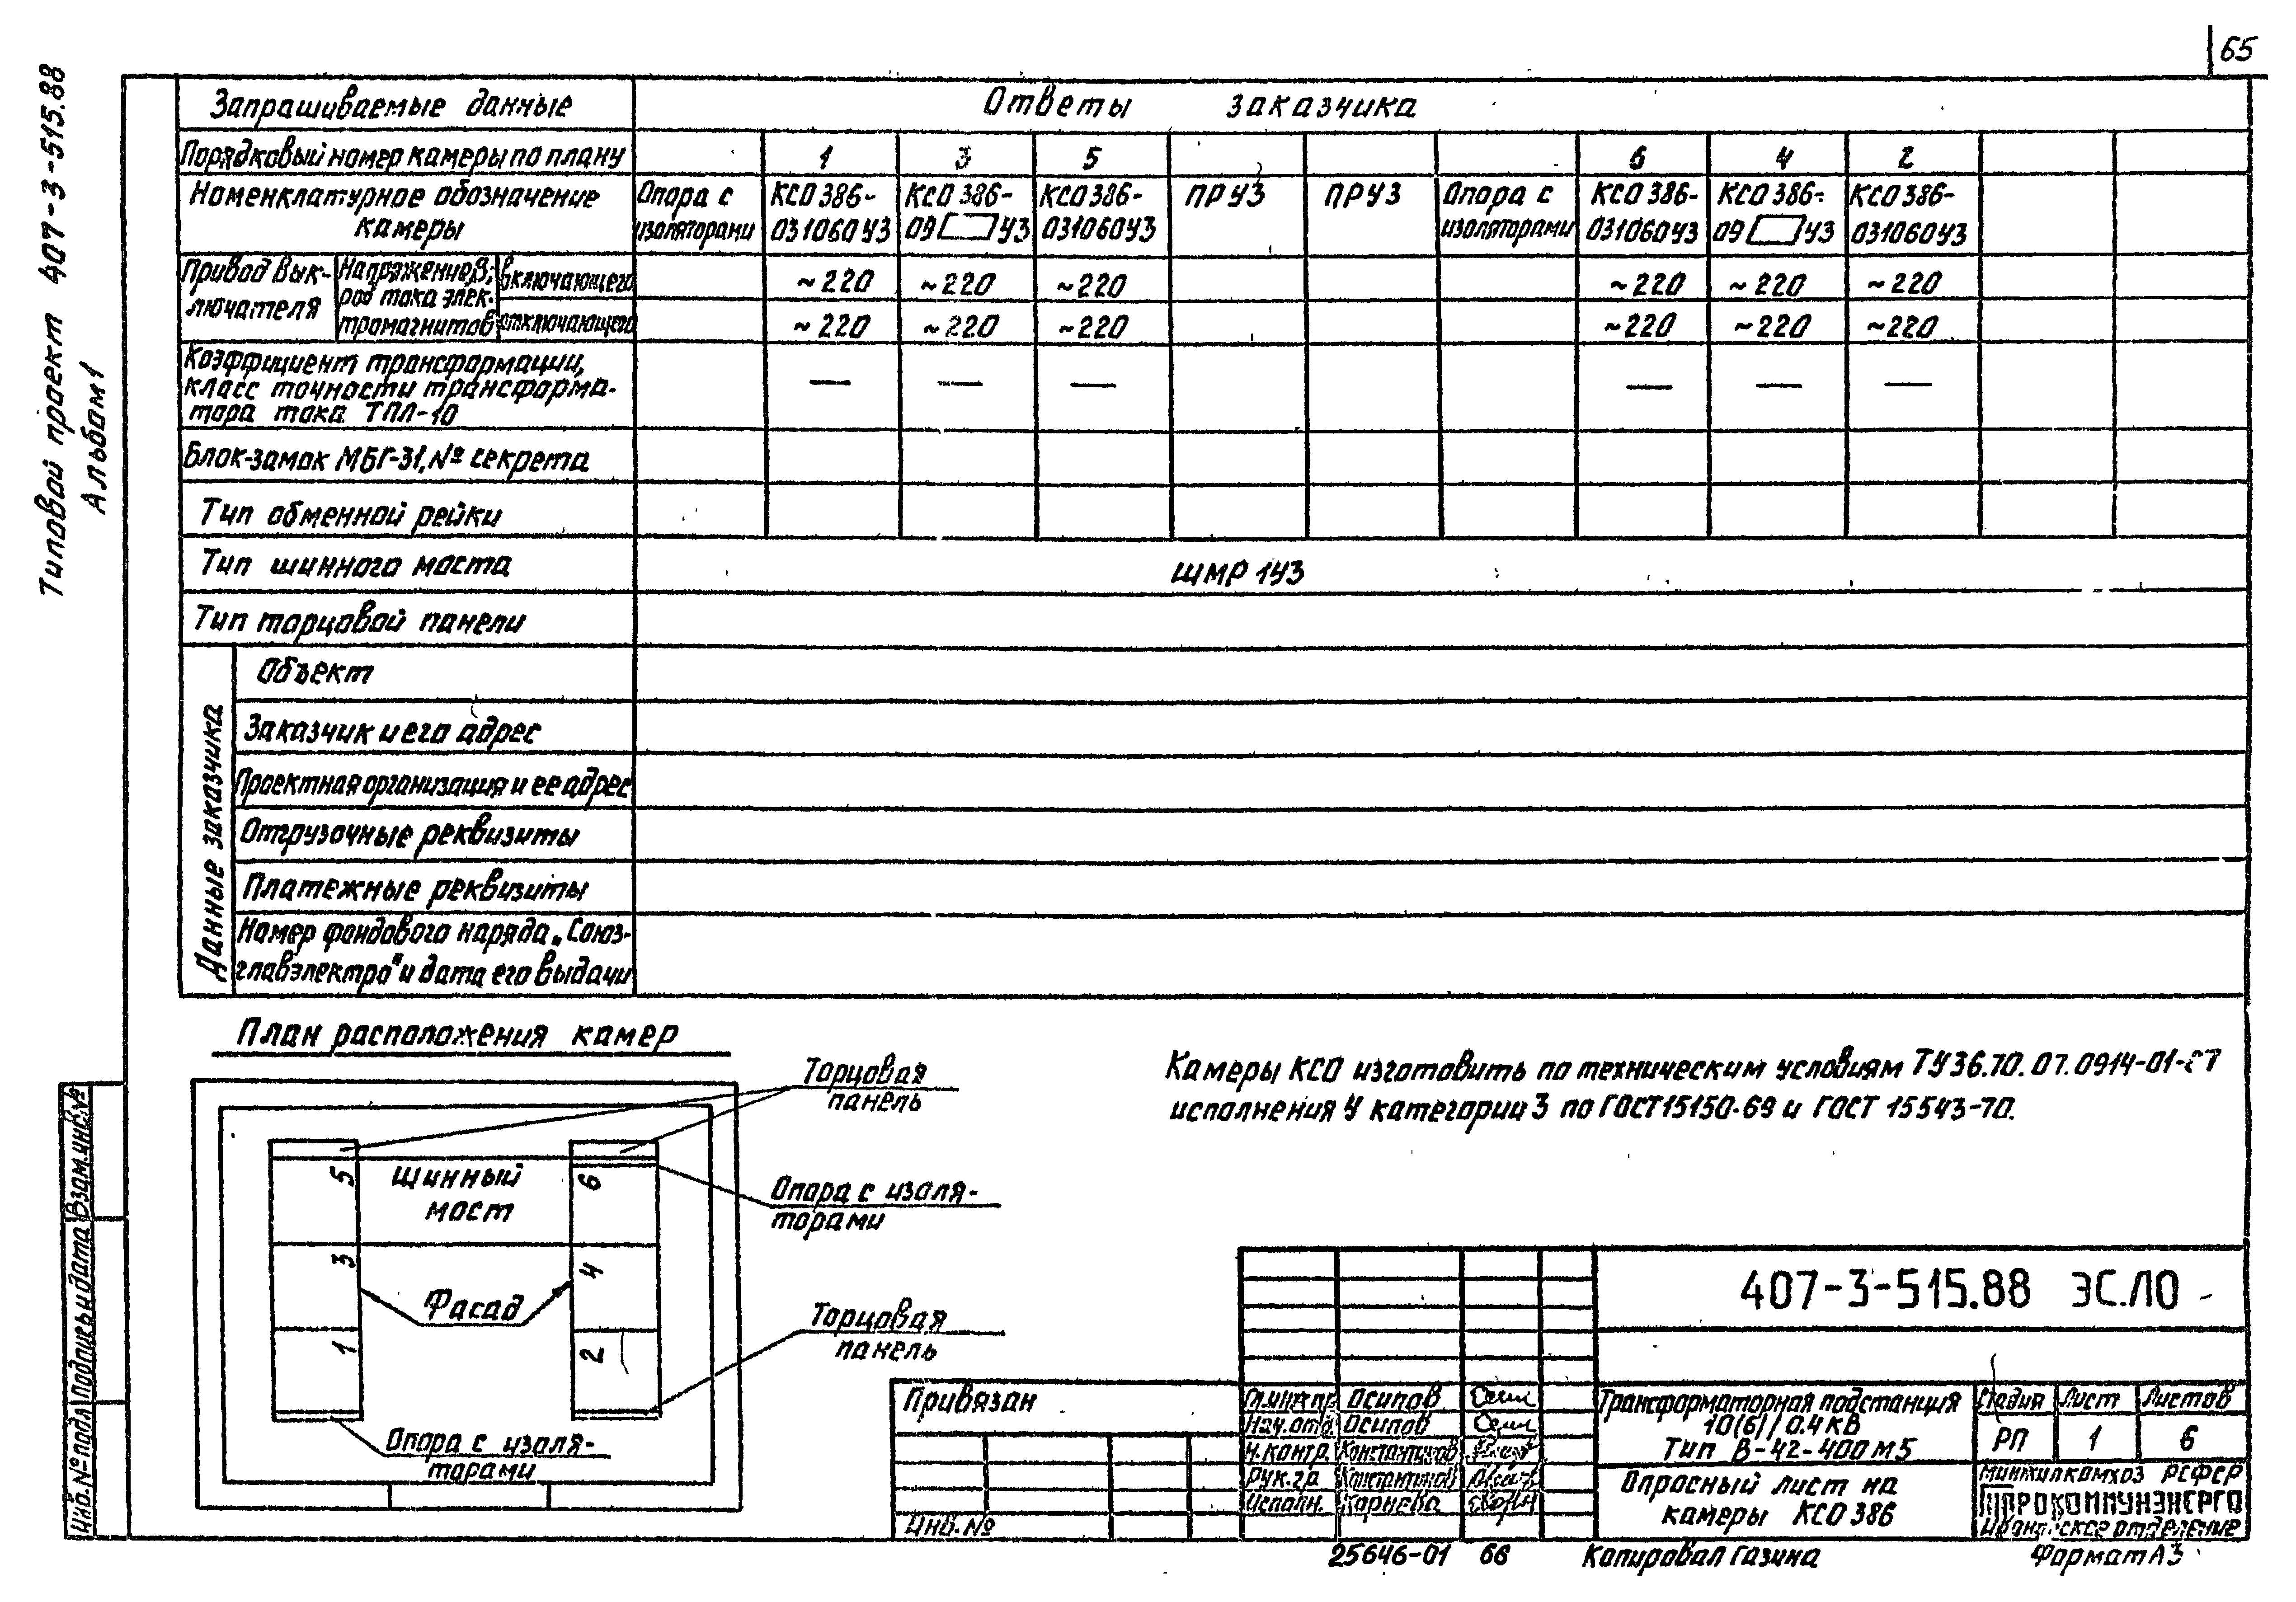 65
Типовой проект 407-3-515.88
Альбом 1
Запрашиваемые данные
Ответы заказчика
Порядковый номер камеры по плану
1 3 5 6 4 2
Номенклатурное обозначение
камеры
Опора с КСО 386- КСО 386- КСО 386- ПРУЗ ПРУЗ Опора с КСО 386- КСО 386- КСО 386-
изоляторами 03106043 09 У3 03106043 изоляторами 03106043 09 У3 03106043
Привод вык-
лючателя
Напряжение, В,
род тока элек-
тромагнитов
включающего
~220 ~220 ~220 ~220 ~220 ~220
отключающего
~220 ~220 ~220 ~220 ~220 ~220
Коэффициент трансформации,
класс точности трансформа-
тора тока ТПЛ-10
— — — — — —
Блок-замок МБГ-31, № секрета
Тип обменной рейки
Тип шинного моста
ШМР 1У3
Тип торцовой панели
Данные заказчика
Объект
Заказчик и его адрес
Проектная организация и ее адрес
Отгрузочные реквизиты
Платежные реквизиты
Номер фондового наряда „Союз-
главэлектро" и дата его выдачи
План расположения камер
Торцовая
панель
5
Шинный
мост
6
Опора с изоля-
торами
3
4
Фасад
1
2
Торцовая
панель
Опора с изоля-
торами
Камеры КСО изготовить по техническим условиям ТУ36.70.07.0914-01-87
исполнения У категории 3 по ГОСТ15150-69 и ГОСТ 15543-70.
Взам.инв.№
Подпись и дата
Инв.№ подл
407-3-515.88 ЭС.ЛО
Привязан
Инв.№
Гл.инж.пр. Осипов
Нач.отд. Осипов
Н.контр. Константинов
Рук.гр Константинов
Исполн. Корнева
Трансформаторная подстанция
10(6)/0.4 кВ
Тип В-42-400 М5
Стадия Лист Листов
РП 1 6
Опросный лист на
камеры КСО 386
Минжилкомхоз РСФСР
ГИПРОКОММУНЭНЕРГО
Ивановское отделение
25646-01 66 Копировал Газина Формат А3